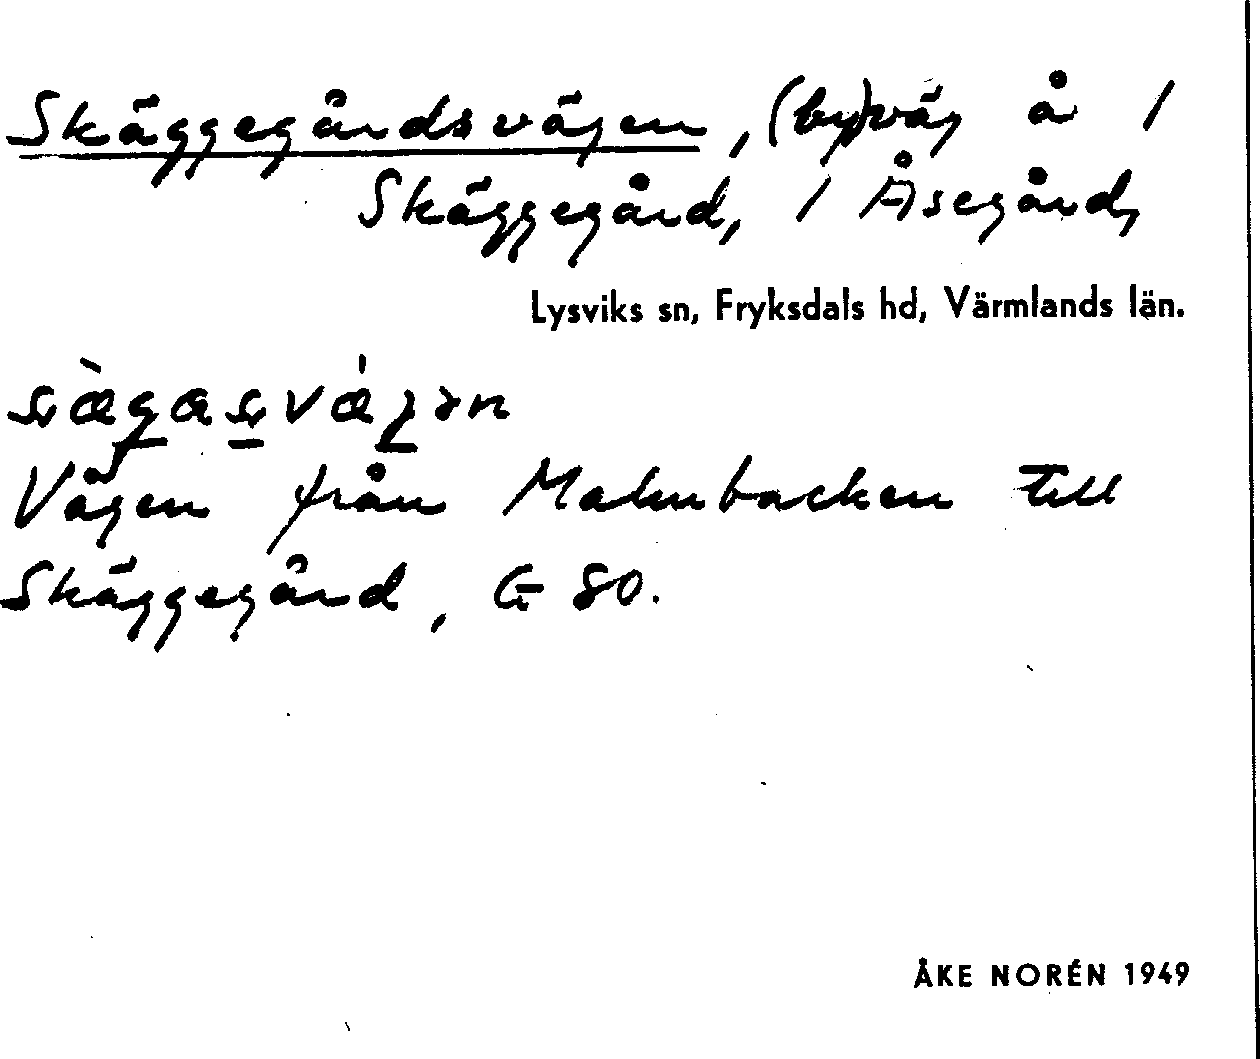 Skäggegårdsvägen, (by)väg å 1
Skäggegård, 1 Åsegård,
Lysviks sn, Fryksdals hd, Värmlands län.
Vägen från Malmbacken till
Skäggegård, G 80.
ÅKE NORÉN 1949